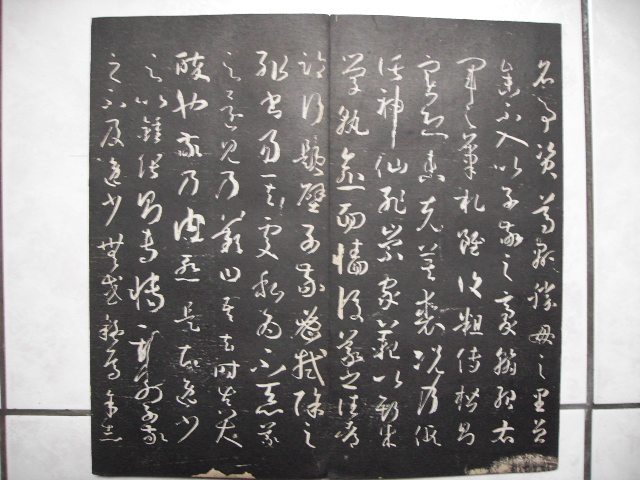 名事資尊顯勝母之里曾
參不入以子敬之豪翰紹右
軍之筆札雖復粗傳楷則
實恐未克箕裘況乃假
託神仙恥崇家範以斯成
學孰愈面牆後羲之往都
臨行題壁子敬密拭除之
輒書易其處私為不惡羲
之還見乃歎曰吾去時真大
醉也敬乃內慚是知逸少
之比鍾張則專博斯別子敬
之不及逸少無或疑焉余志